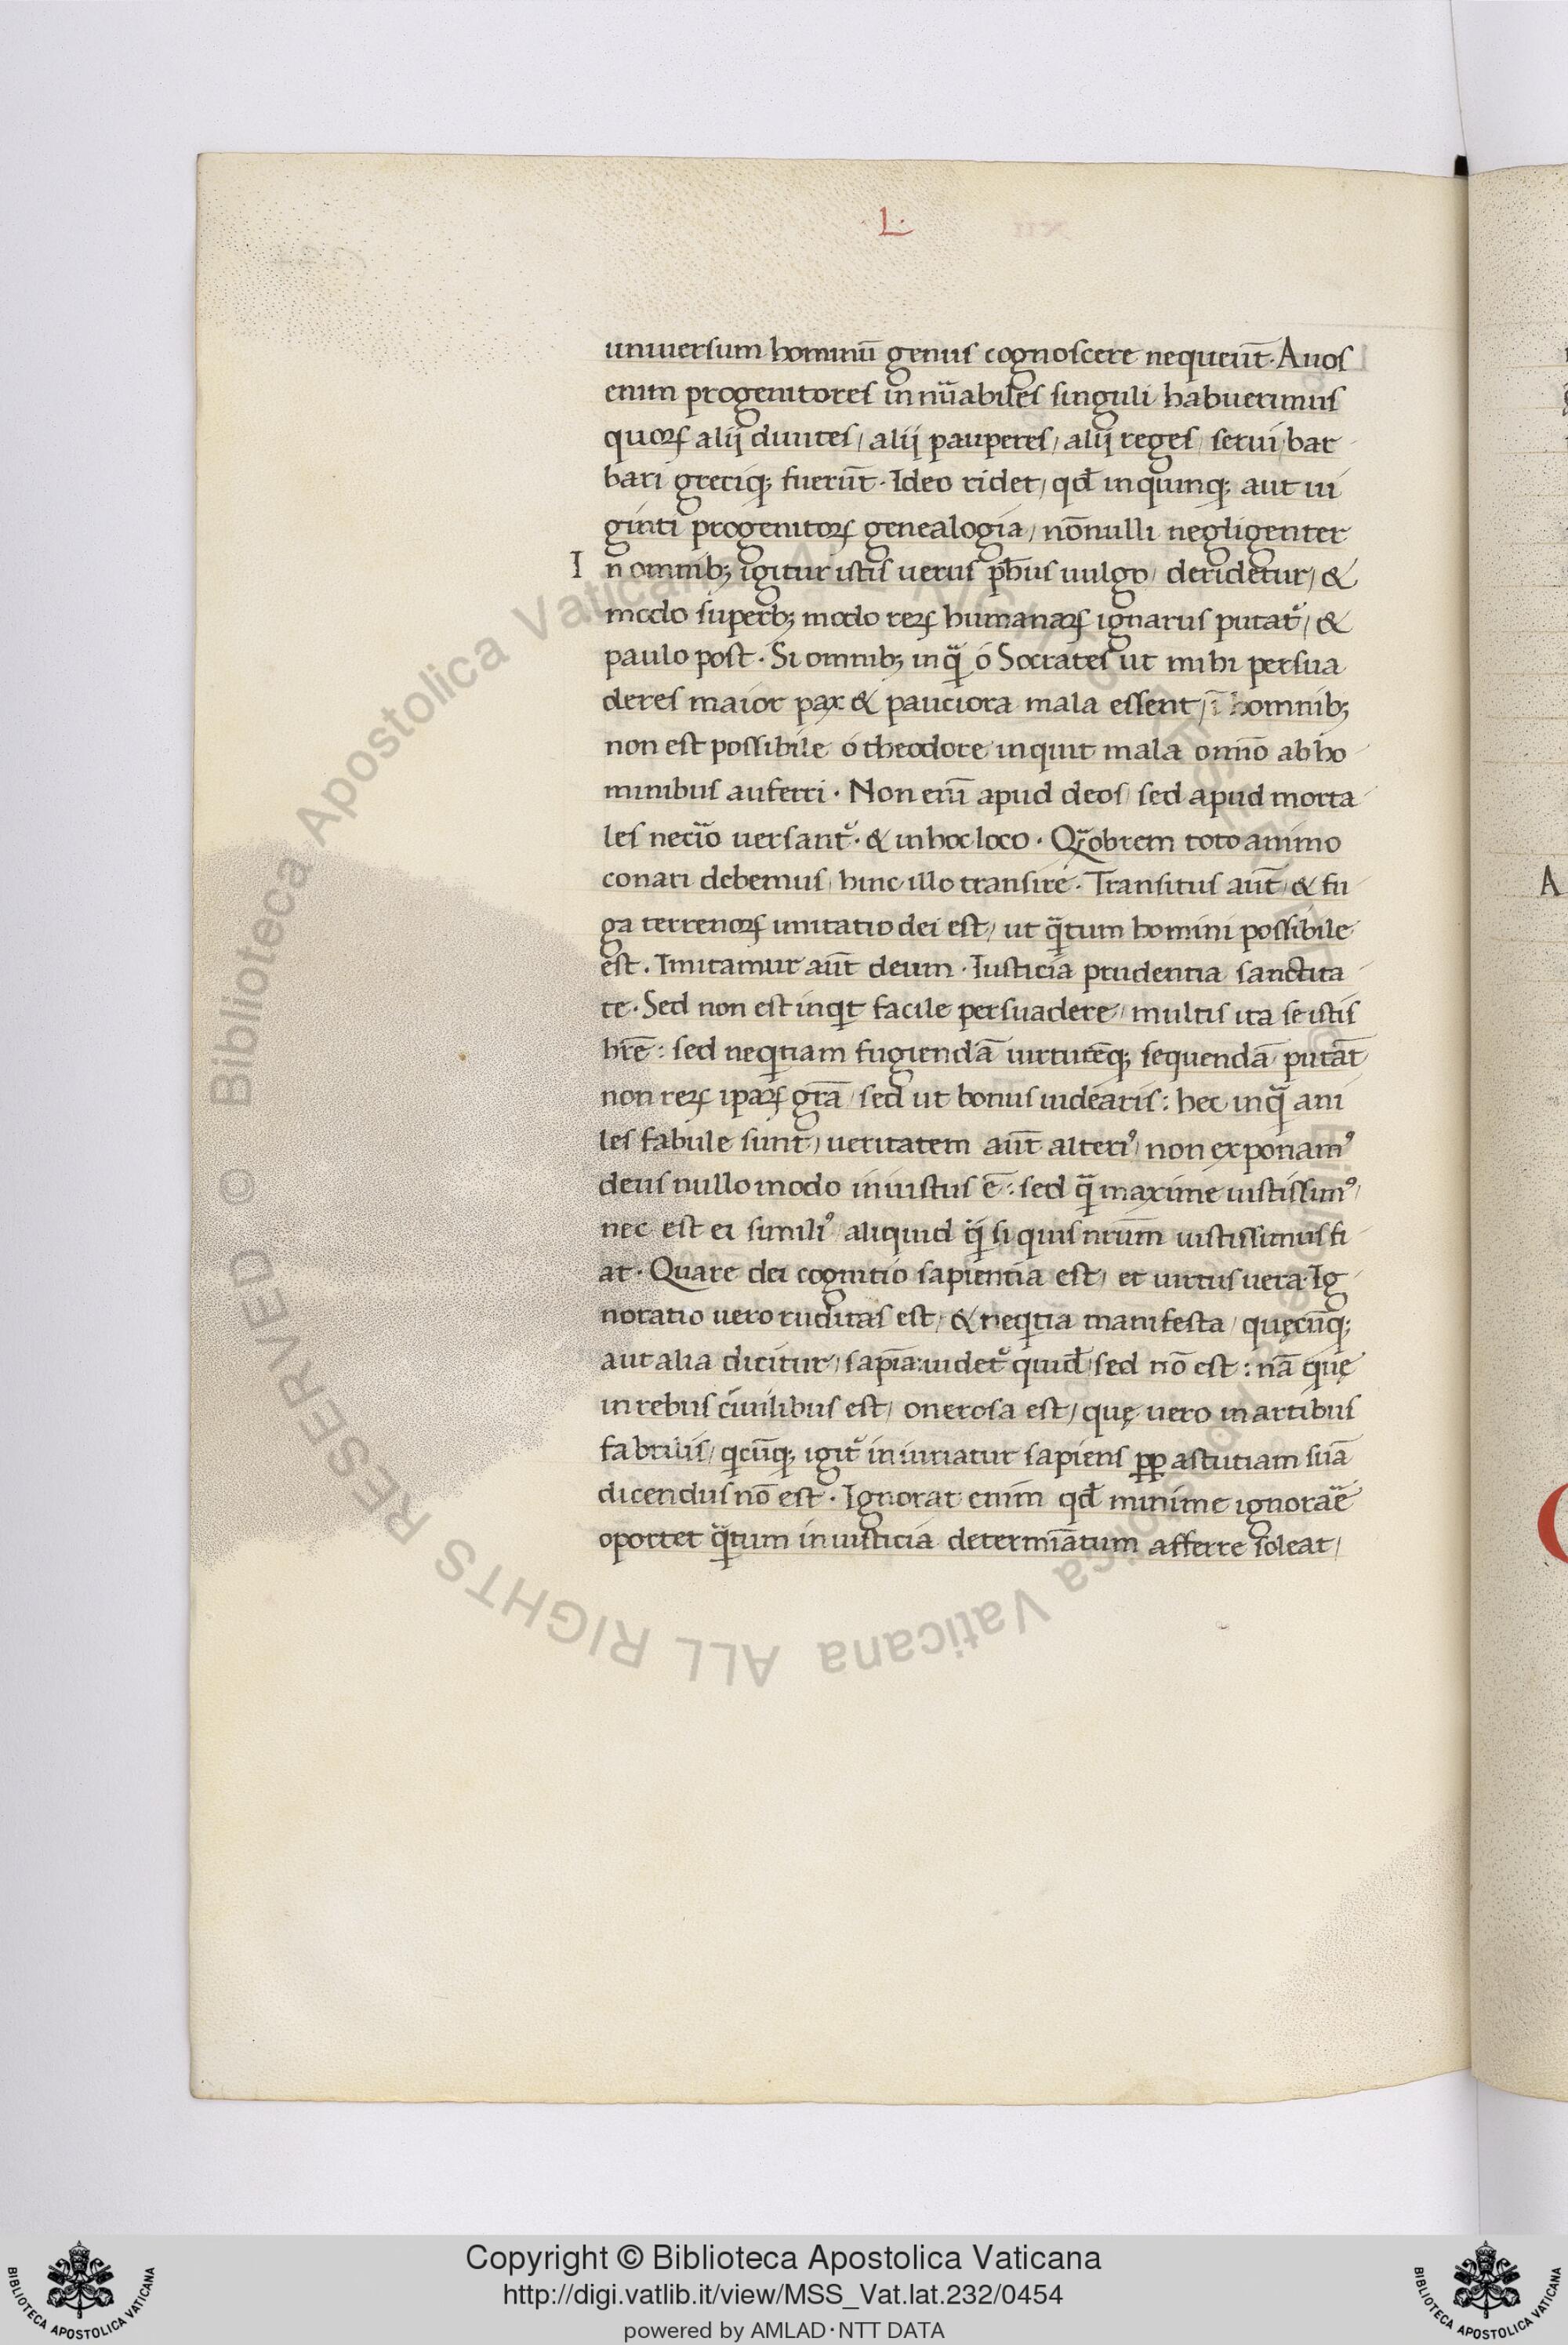 L·
uniuersum hominū genus cognoscere nequeūt· Auos
enim progenitores innūabiles singuli habuerimus
quoꝝ alij diuites, alij pauperes, alij reges, serui, bar
bari greciqꝫ fuerūt· Ideo ridet, qđ in quinqꝫ aut ui
ginti progenitoꝝ genealogia, nōnulli negligenter
In omnibꝫ igitur istis uerus ph̄us uulgo, deridetur, &
modo superbꝫ modo reꝝ humanaꝝ ignarus putat᷑, &
paulo post· Si omnibꝫ inq̄ ó Socrates ut mihi persua
deres maior pax & pauciora mala essent, ī homnibꝫ
non est possibile ó theodore inquit mala omīo ab ho
minibus auferri· Non enī apud deos, sed apud morta
les necīo uersant᷑· & in hoc loco· Qᷓobrem toto animo
conari debemus, hinc illo transire· Transitus aūt & fu
ga terrenoꝝ imitatio dei est, ut qᷓtum homini possibile
est· Imitamur aūt deum· Iusticia prudentia sanctita
te· Sed non est inqͥt facile persuadere, multis ita se istis
hr̄e: sed neqͥtiam fugiendā uirtutēqꝫ sequendā putāt
non reꝝ ipaꝝ grā, sed ut bonus uidearis: hec inqᷓ ani
les fabule sunt, ueritatem aūt alteriꝰ, non exponamꝰ
deus nullo modo iniustus ē: sed qᷓ maxime iustissimꝰ,
nec est ei similiꝰ aliquid qᷓ si quis nr̄um iustissimus fi
at· Quare dei cognitio sapientia est, et uirtus uera· Ig
noratio uero ruditas est, & neqͥtia manifesta, quęcūqꝫ
aut alia dicitur, sapīa: uidet᷑ quid̄, sed nō est: nā quę
in rebus ciuilibus est, onerosa est, quę uero in artibus
fabrilis, qͥcūqꝫ igit᷑ iniuriatur sapiens ꝓꝑ astutiam suā
dicendus nō est· Ignorat enim qđ minime ignorar̄e
oportet qᷓtum iniusticia determīatum afferre soleat,
Copyright © Biblioteca Apostolica Vaticana
http://digi.vatlib.it/view/MSS_Vat.lat.232/0454
powered by AMLAD·NTT DATA
© Biblioteca Apostolica Vaticana ALL RIGHTS RESERVED
BIBLIOTECA APOSTOLICA VATICANA
BIBLIOTECA APOSTOLICA VATICANA